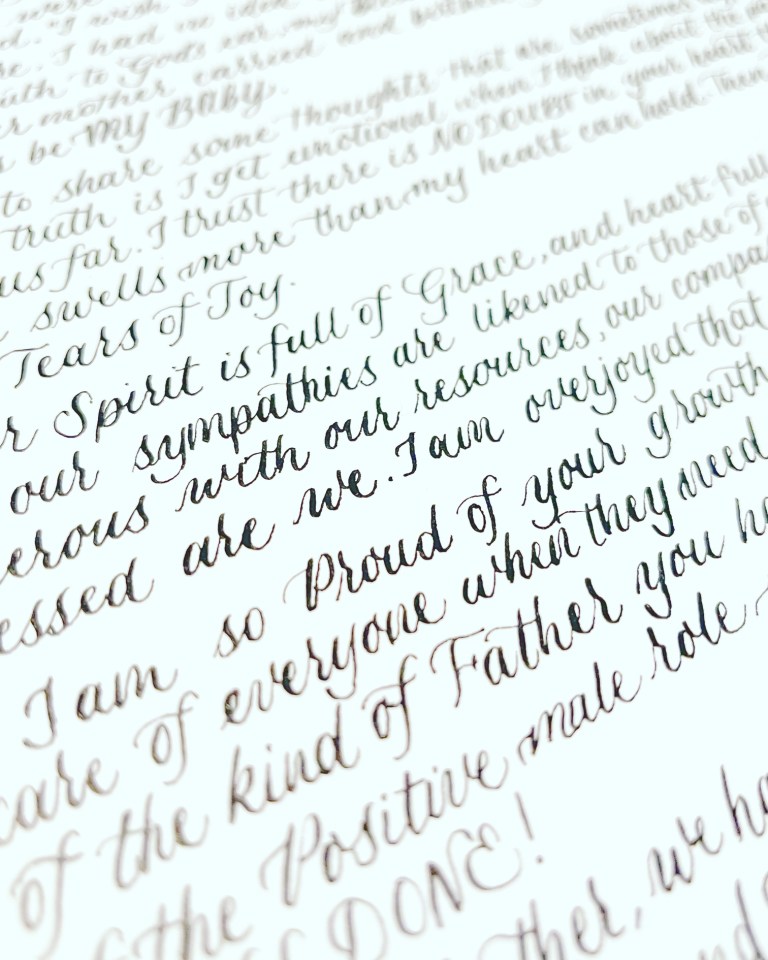 I had no idea
to God's ear, my
mother carried and
be MY BABY.
to share some thoughts that are sometimes
truth is I get emotional when I think about the
us far. I trust there is NO DOUBT in your heart
swells more than my heart can hold. Then
Tears of Joy.
r Spirit is full of Grace, and heart full
our sympathies are likened to those of
erous with our resources, our compa
essed are we. I am overjoyed that
I am so Proud of your growth
care of everyone when they need
of the kind of Father you h
the Positive male role
DONE!
ther, we ha